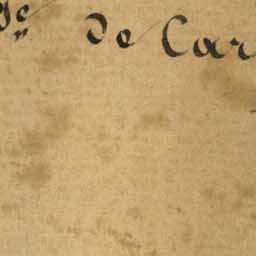 de Car